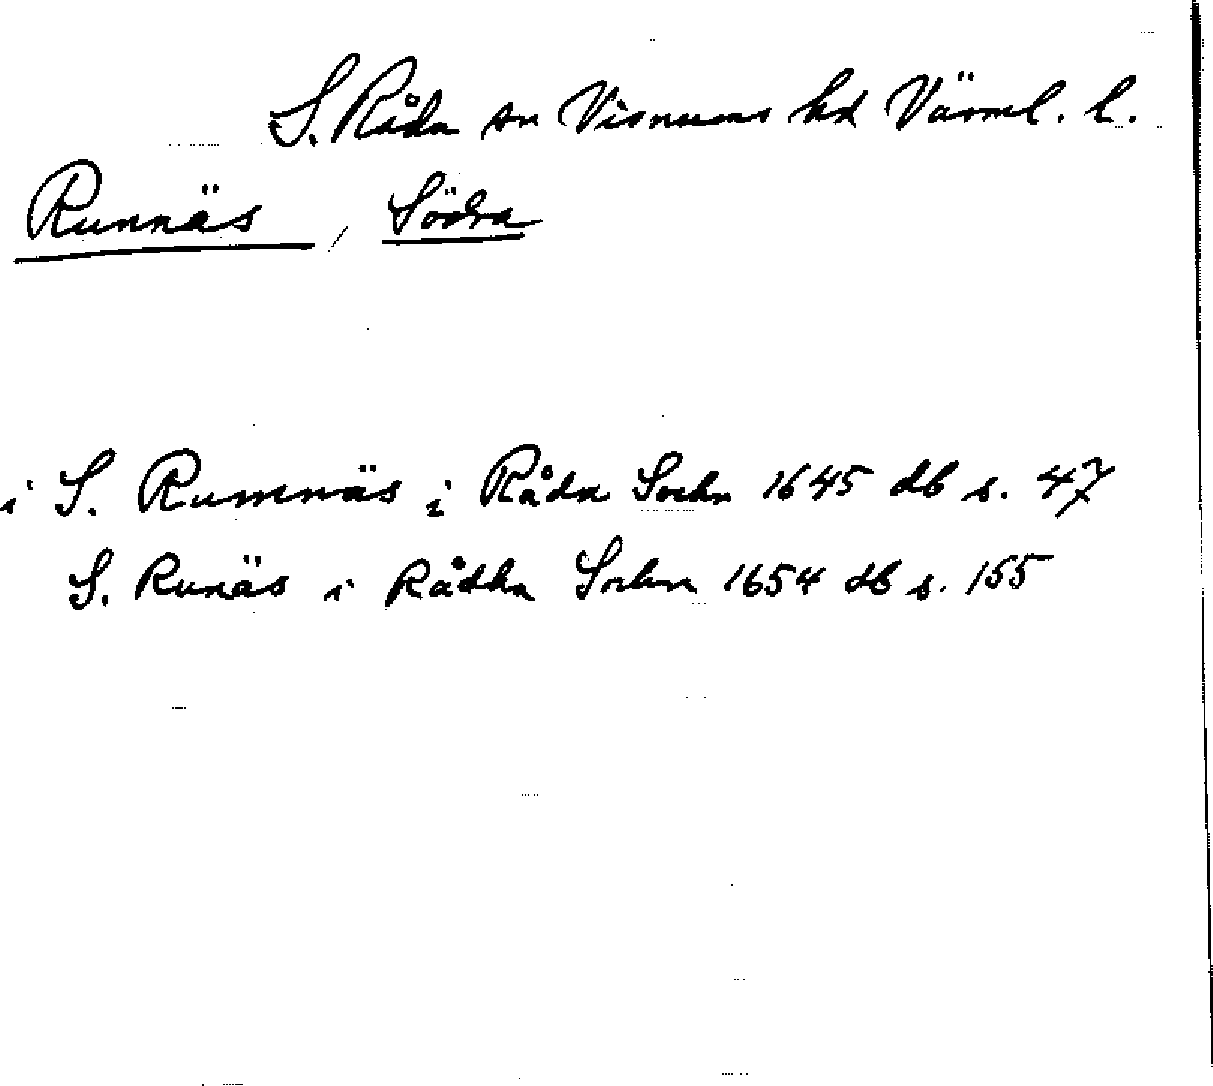 S. Råda sn Visnums hd Värml. l.
Runnäs, Södra
i S. Rumnäs i Råda Sochn 1645 db s. 47
S. Runäs i Rådha Sochn 1654 db s. 155